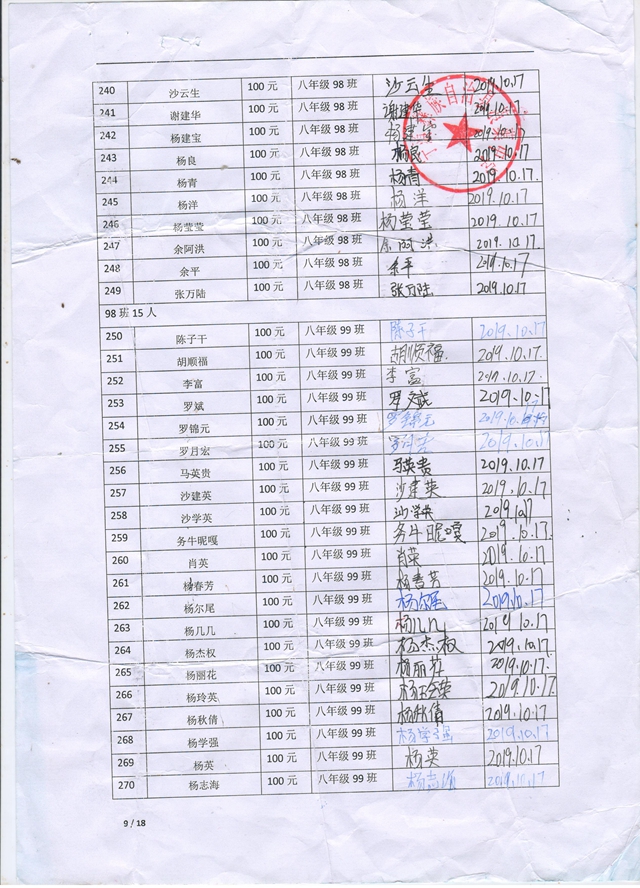 240 沙云生 100 元 八年级 98 班 沙云生 2019.10.17
241 谢建华 100 元 八年级 98 班 谢建华 2019.10.17
242 杨建宝 100 元 八年级 98 班 杨建宝 2019.10.17
243 杨良 100 元 八年级 98 班 杨良 2019.10.17
244 杨青 100 元 八年级 98 班 杨青 2019.10.17
245 杨洋 100 元 八年级 98 班 杨洋 2019.10.17
246 杨莹莹 100 元 八年级 98 班 杨莹莹 2019.10.17
247 余阿洪 100 元 八年级 98 班 余阿洪 2019.10.17
248 余平 100 元 八年级 98 班 余平 2019.10.17
249 张万陆 100 元 八年级 98 班 张万陆 2019.10.17
98 班 15 人
250 陈子干 100 元 八年级 99 班 陈子干 2019.10.17
251 胡顺福 100 元 八年级 99 班 胡顺福 2019.10.17
252 李富 100 元 八年级 99 班 李富 2019.10.17
253 罗斌 100 元 八年级 99 班 罗斌 2019.10.17
254 罗锦元 100 元 八年级 99 班 罗锦元 2019.10.17
255 罗月宏 100 元 八年级 99 班 2019.10.17
256 马英贵 100 元 八年级 99 班 马英贵 2019.10.17
257 沙建英 100 元 八年级 99 班 沙建英 2019.10.17
258 沙学英 100 元 八年级 99 班 沙学英 2019.10.17
259 务牛昵嘎 100 元 八年级 99 班 务牛昵嘎 2019.10.17
260 肖英 100 元 八年级 99 班 肖英 2019.10.17
261 杨春芳 100 元 八年级 99 班 杨春芳 2019.10.17
262 杨尔尾 100 元 八年级 99 班 杨尔尾 2019.10.17
263 杨几几 100 元 八年级 99 班 杨几几 2019.10.17
264 杨杰权 100 元 八年级 99 班 杨杰权 2019.10.17
265 杨丽花 100 元 八年级 99 班 杨丽花 2019.10.17
266 杨玲英 100 元 八年级 99 班 杨玲英 2019.10.17
267 杨秋倩 100 元 八年级 99 班 杨秋倩 2019.10.17
268 杨学强 100 元 八年级 99 班 杨学强 2019.10.17
269 杨英 100 元 八年级 99 班 杨英 2019.10.17
270 杨志海 100 元 八年级 99 班 杨志海 2019.10.17
9 / 18